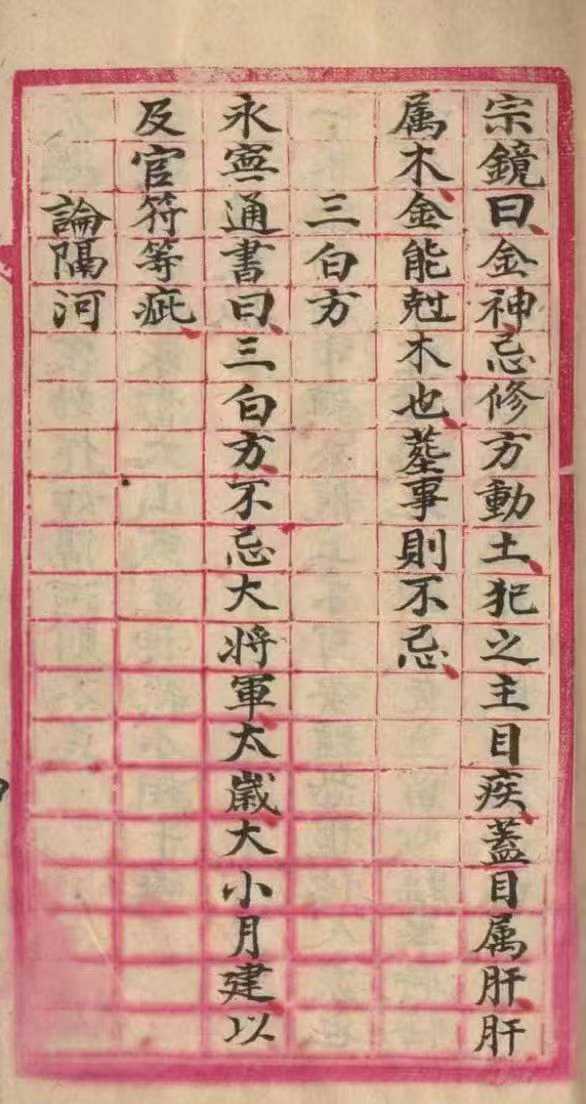 宗鏡曰金神忌修方動土犯之主目疾蓋目属肝肝
属木金能尅木也塟事則不忌
三白方
永寧通書曰三白方不忌大將軍太歲大小月建以
及官符等疵
論隔河